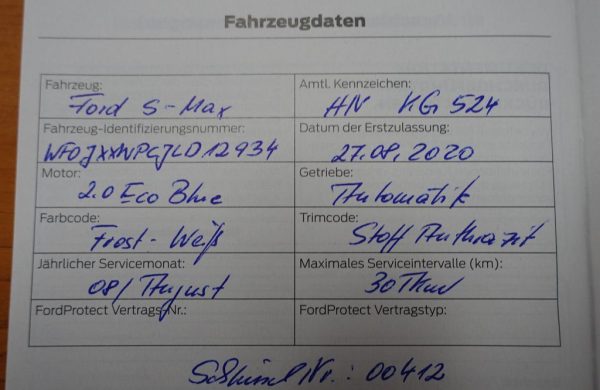 Fahrzeugdaten
Fahrzeug: Amtl. Kennzeichen:
Ford S-Max HN KG 524
Fahrzeug-Identifizierungsnummer: Datum der Erstzulassung:
WF0JXXWPCJLD12934 27.08.2020
Motor: Getriebe:
2.0 Eco Blue Automatik
Farbcode: Trimcode:
Frost-Weiß Stoff Anthrazit
Jährlicher Servicemonat: Maximales Serviceintervalle (km):
08/August 30Tkm
FordProtect Vertrags-Nr.: FordProtect Vertragstyp:
Schlüssel Nr.: 00412